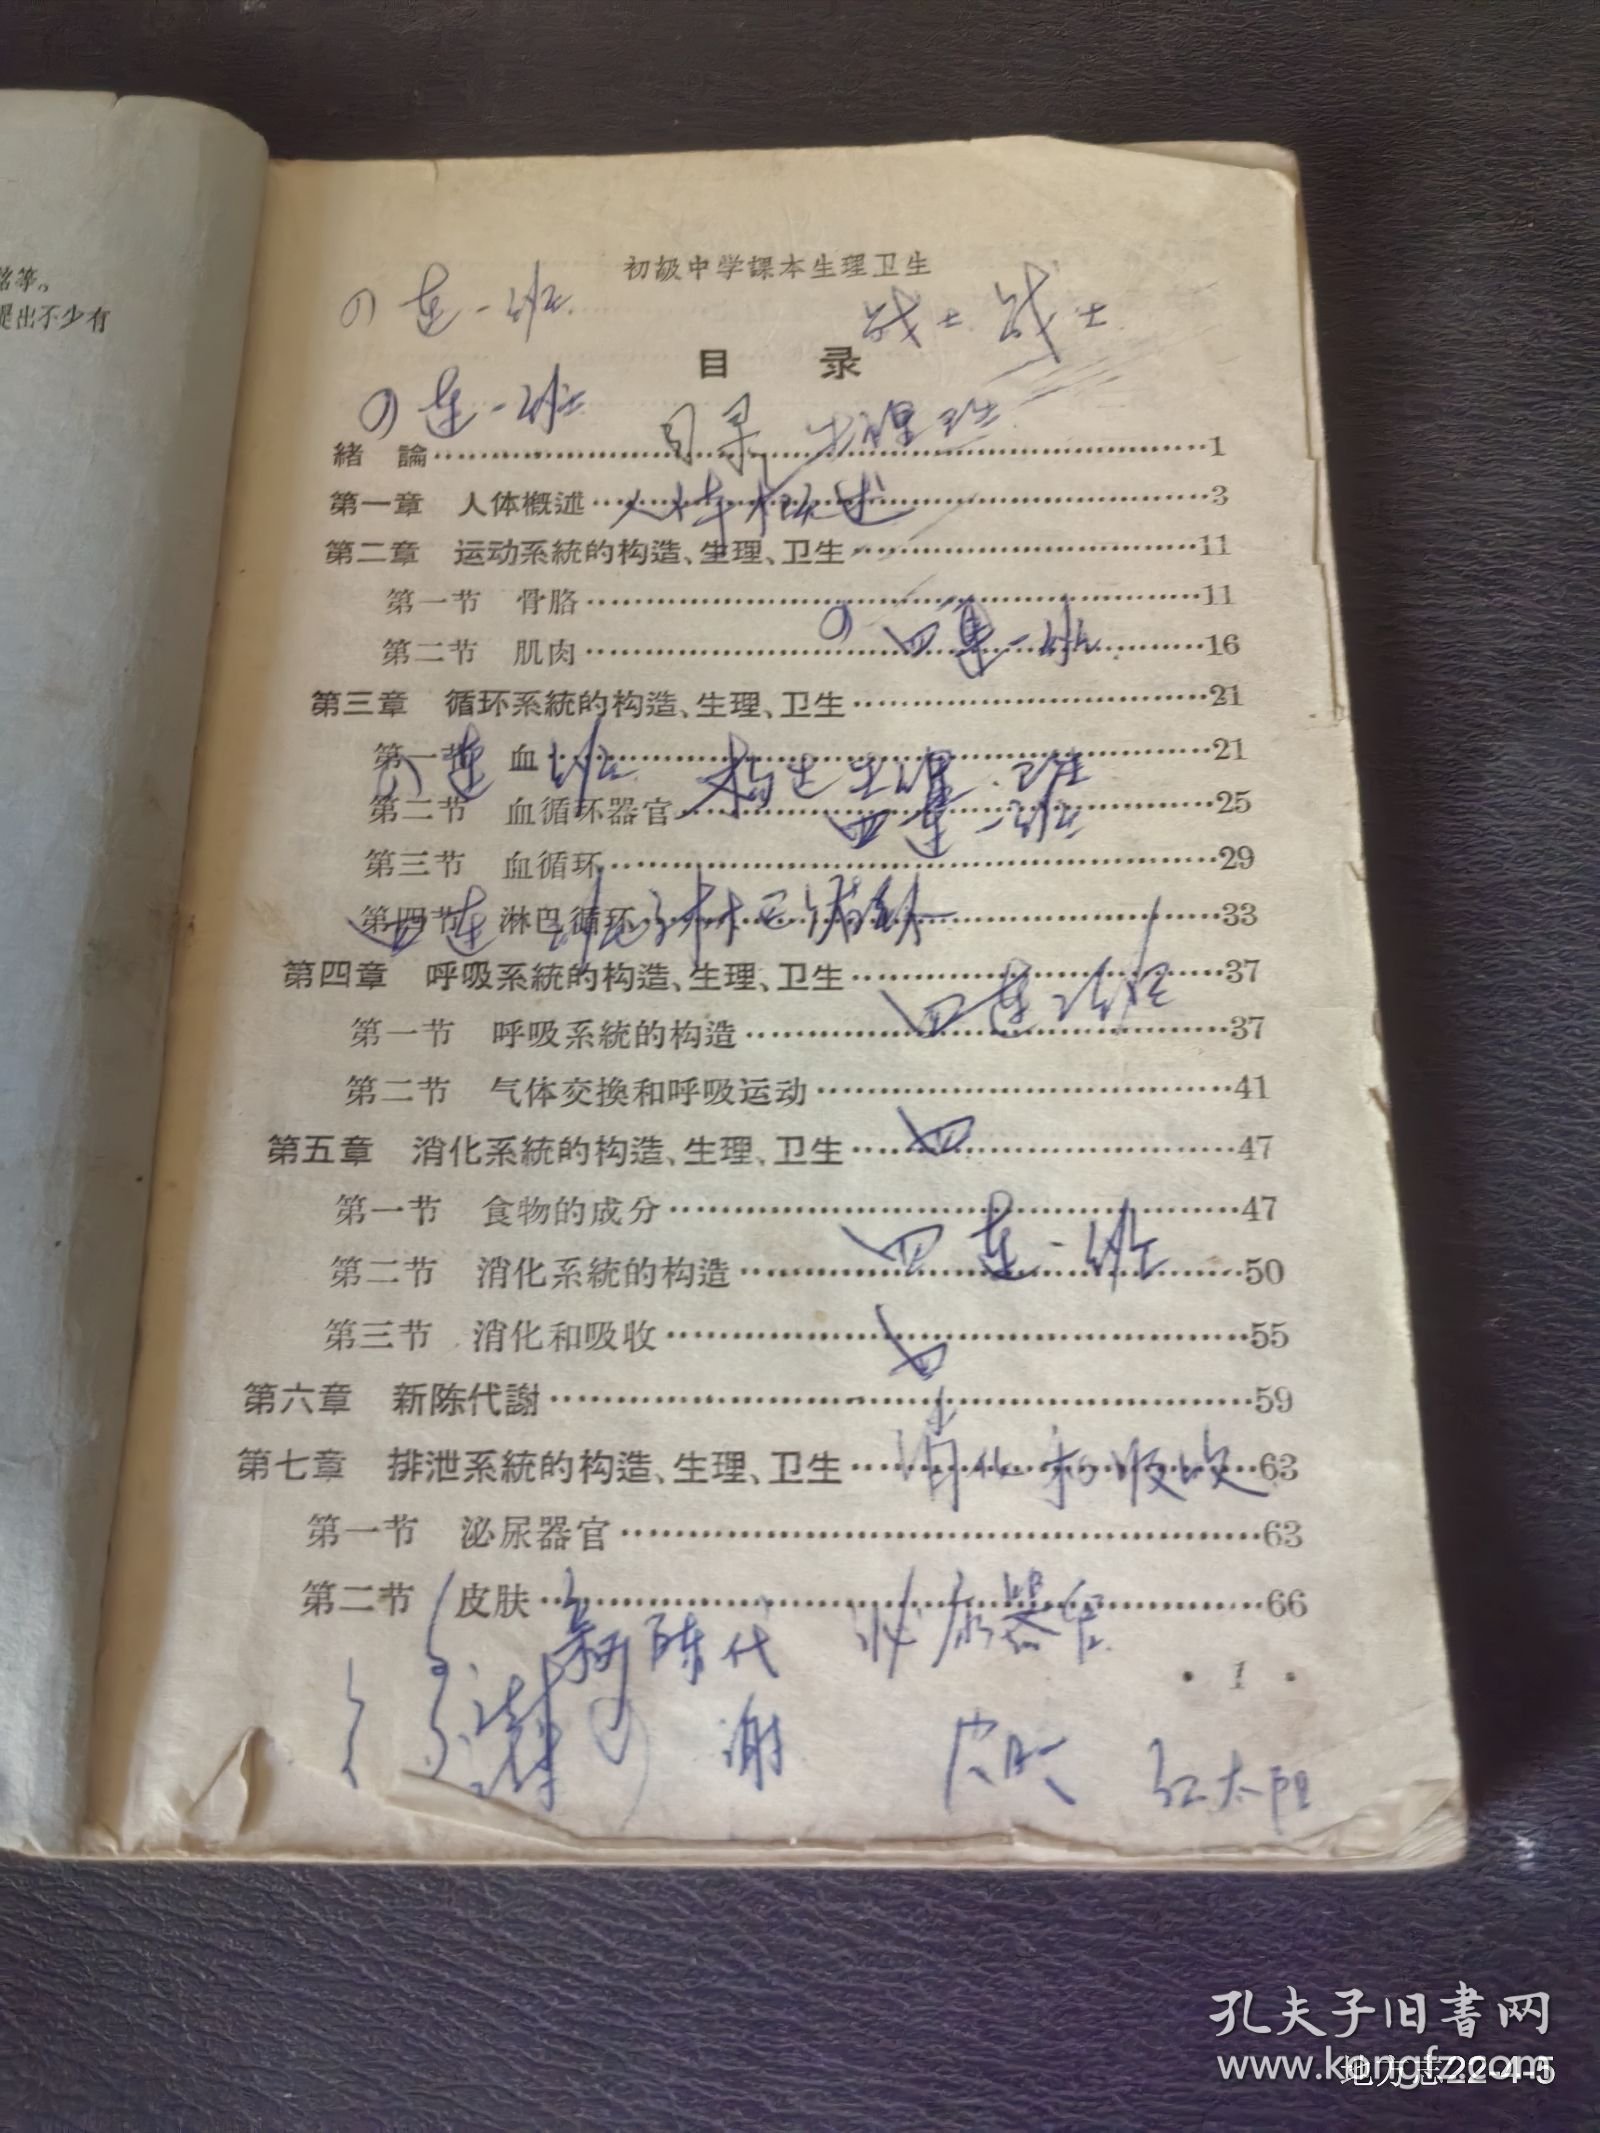 等。
提出不少有
初級中学課本生理卫生
连一班
战士 战士
目 录
连一班
目录 生理
緒 論……1
第一章 人体概述……3
人体概述
第二章 运动系統的构造、生理、卫生……11
第一节 骨胳……11
四连一班
第二节 肌肉……16
第三章 循环系統的构造、生理、卫生……21
第一节 血……21
连 班
第二节 血循环器官……25
四连一班
第三节 血循环……29
第四节 淋巴循环……33
四连
第四章 呼吸系統的构造、生理、卫生……37
四连
第一节 呼吸系統的构造……37
第二节 气体交換和呼吸运动……41
第五章 消化系統的构造、生理、卫生……47
四
第一节 食物的成分……47
四连一班
第二节 消化系統的构造……50
第三节 消化和吸收……55
四
第六章 新陈代謝……59
第七章 排泄系統的构造、生理、卫生……63
消化和吸收
第一节 泌尿器官……63
第二节 皮肤……66
新陈代 泌尿器官
• 1 •
谢 皮肤 红太阳
孔夫子旧書网
www.kongfz.com
地方志22-4-5